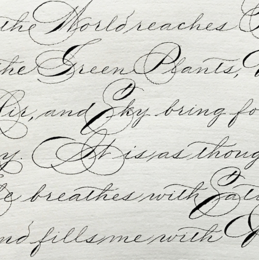 the World reaches
the Green Plants,
Air, and Sky bring fo
y. It is as thoug
breathes with
nd fills me with